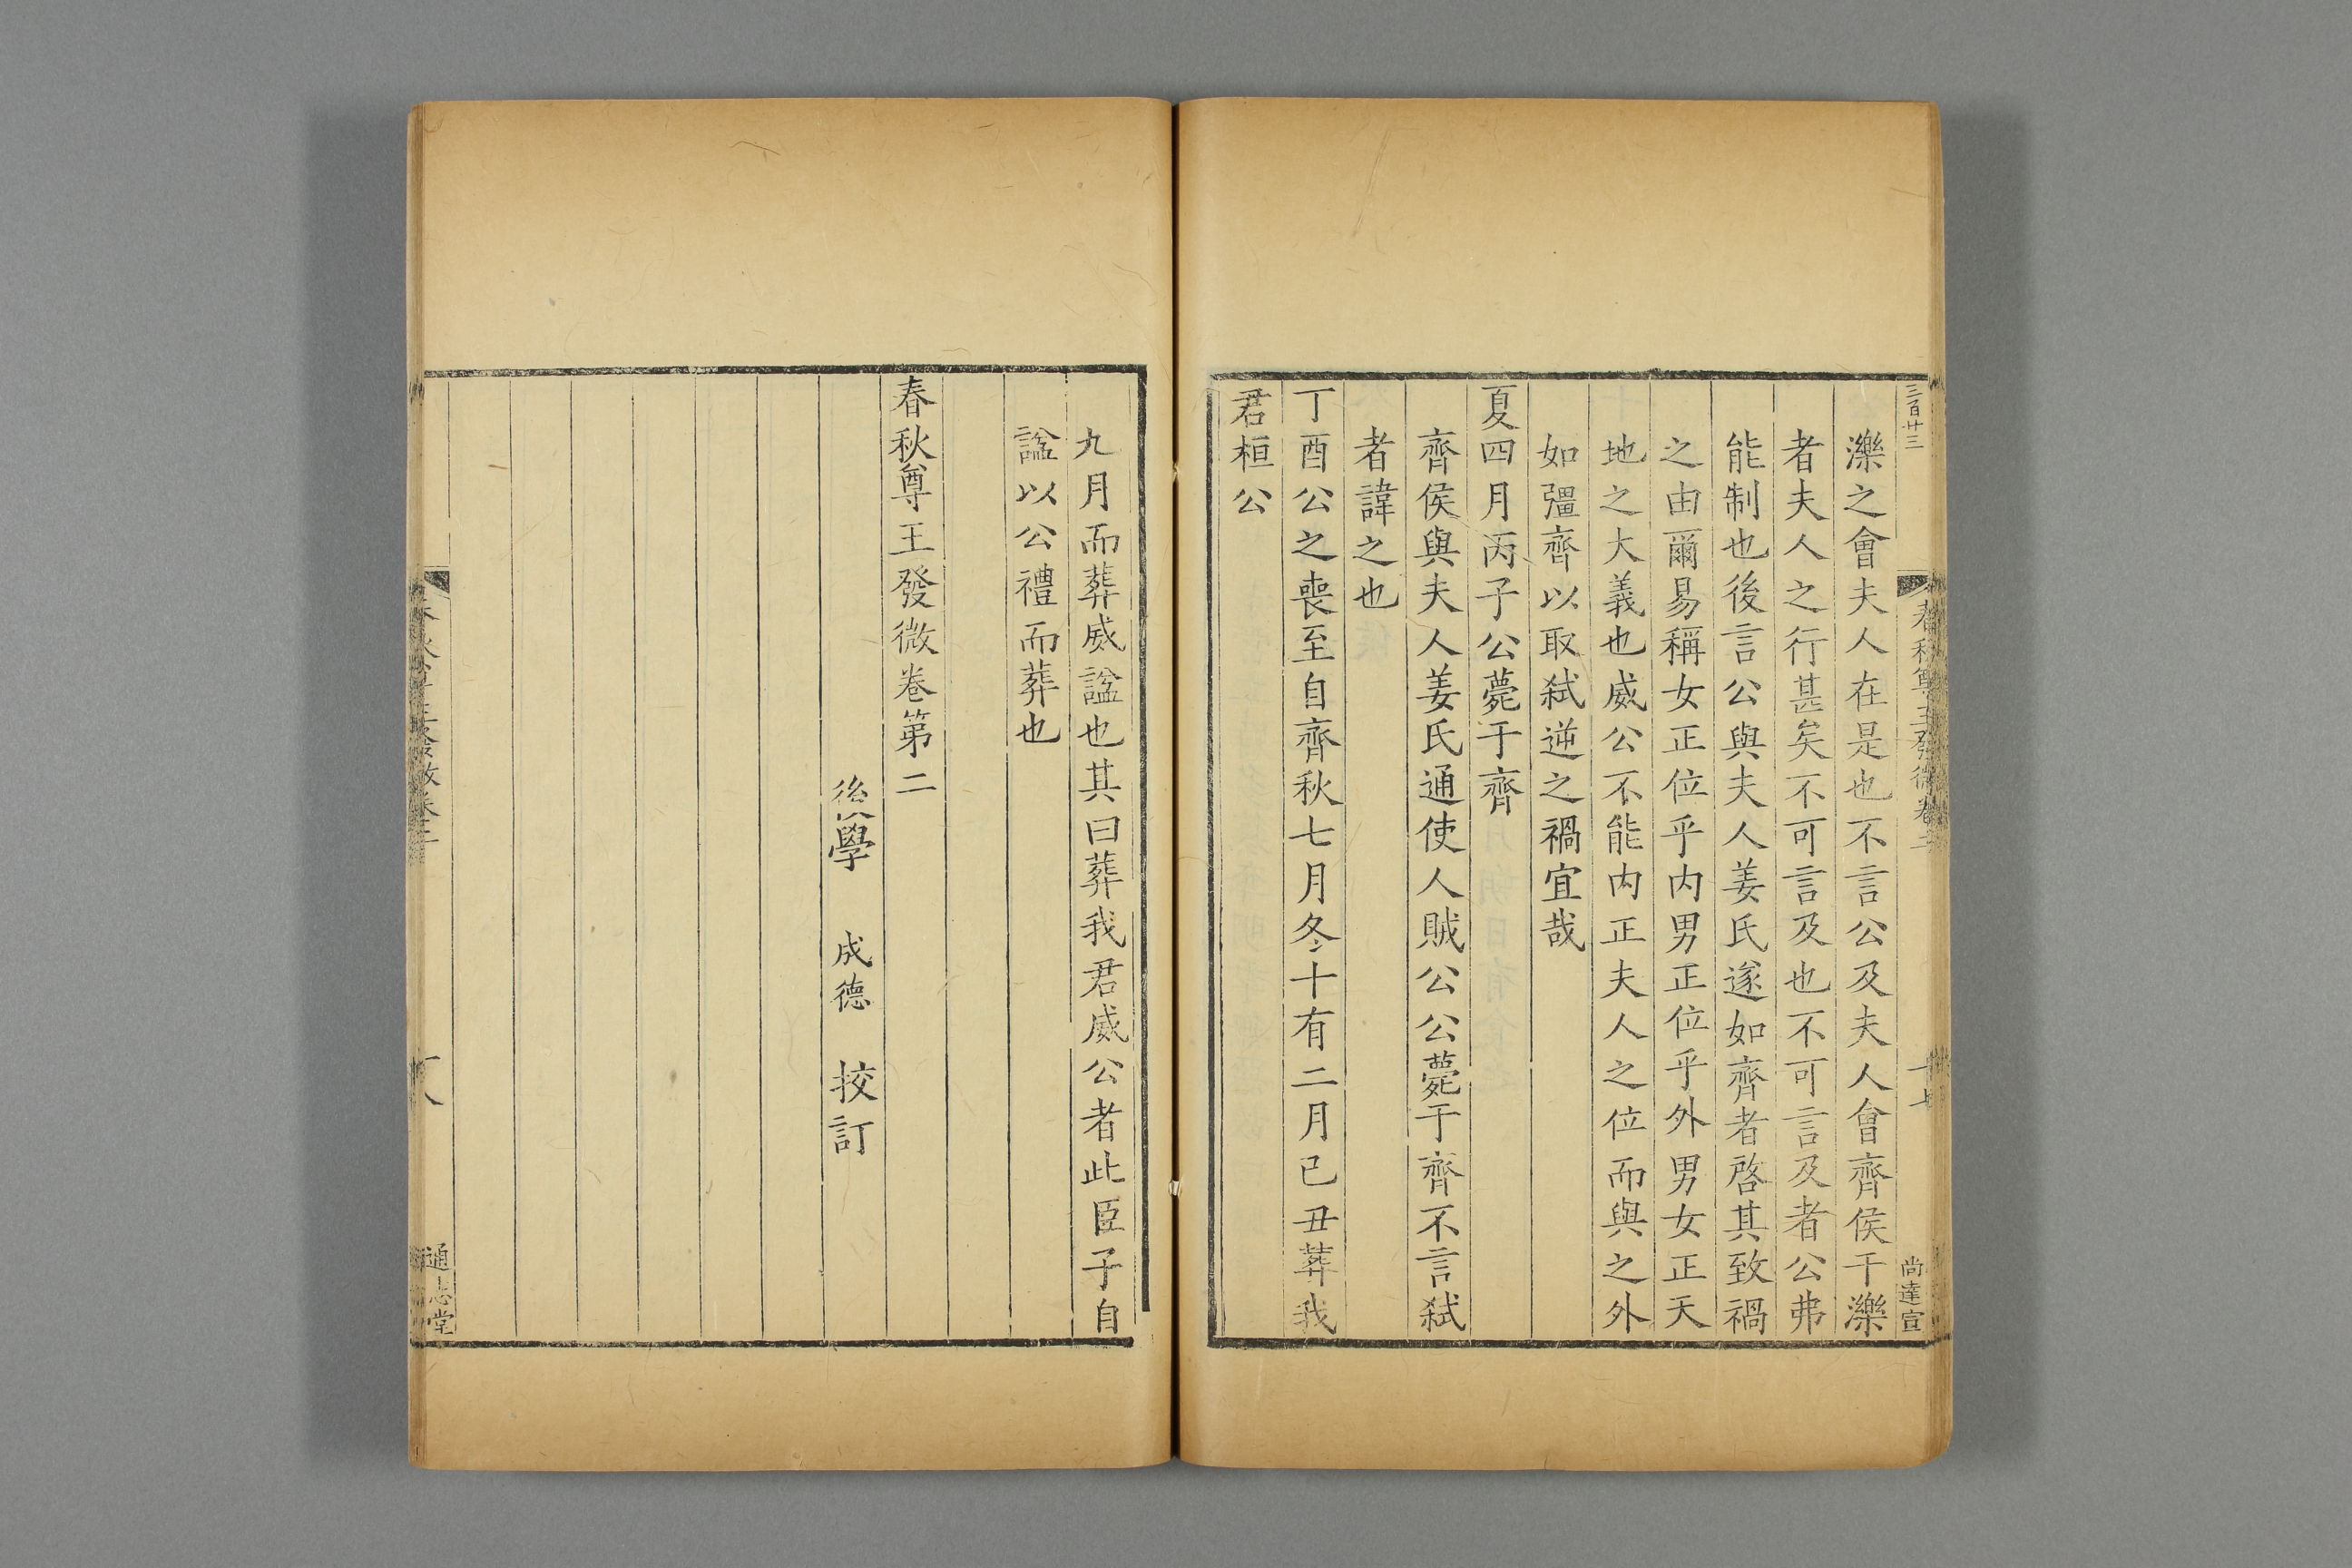 三百廿三
春秋尊王發微卷二
十七
尚達宣
濼之會夫人在是也不言公及夫人會齊侯于濼
者夫人之行甚矣不可言及也不可言及者公弗
能制也後言公與夫人姜氏遂如齊者啓其致禍
之由爾易稱女正位乎内男正位乎外男女正天
地之大義也威公不能内正夫人之位而與之外
如彊齊以取弑逆之禍宜哉
夏四月丙子公薨于齊
齊侯與夫人姜氏通使人賊公公薨于齊不言弑
者諱之也
丁酉公之喪至自齊秋七月冬十有二月己丑葬我
君桓公
九月而葬威諡也其曰葬我君威公者此臣子自
諡以公禮而葬也
春秋尊王發微卷第二
後學 成德 挍訂
通志堂